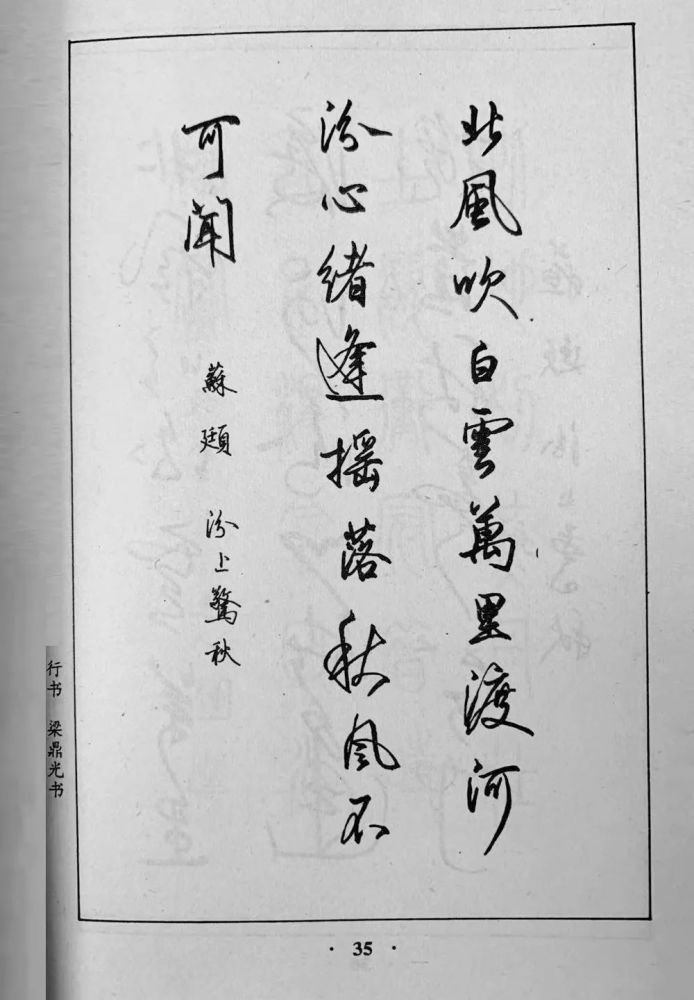 北風吹白雲萬里渡河
汾心緒逢摇落秋風不
可聞
蘇頲 汾上驚秋
行书 梁鼎光书
· 35 ·